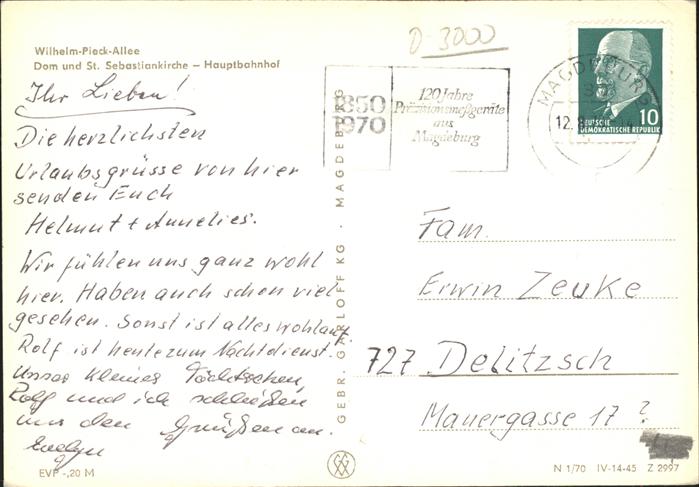 Wilhelm-Pieck-Allee
Dom und St. Sebastiankirche – Hauptbahnhof
Ihr Lieben!
Die herzlichsten
Urlaubsgrüsse von hier
senden Euch
Helmut + Annelies.
Wir fühlen uns ganz wohl
hier. Haben auch schon viel
gesehen. Sonst ist alles wohlauf.
Rolf ist heute zum Nachtdienst.
Unser kleines Töchtschen,
Rolf und ich schließen
uns den Grüßen an.
Evelyn
EVP -,20 M
GEBR. GARLOFF KG · MAGDEBURG
D-3000
1850
1970
120 Jahre
Präzisionsmeßgeräte
aus
Magdeburg
MAGDEBURG
12.
10
DEUTSCHE
DEMOKRATISCHE REPUBLIK
Fam.
Erwin Zeuke
727 Delitzsch
Mauergasse 17 ?
N 1/70 IV-14-45 Z 2997